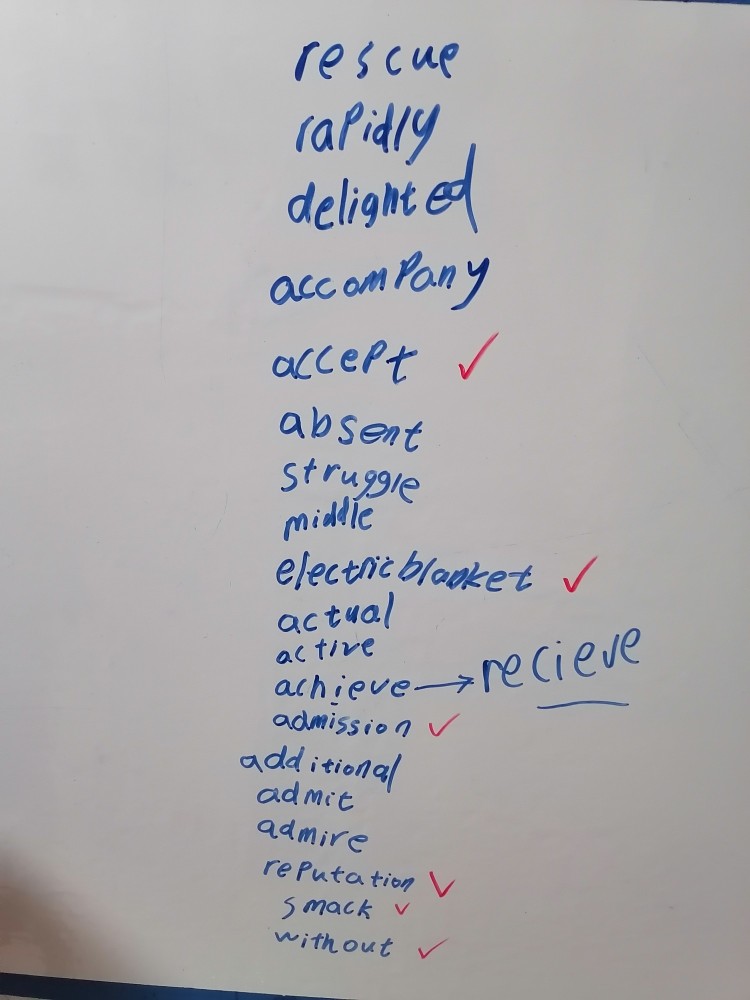 rescue
rapidly
delighted
accompany
accept ✓
absent
struggle
middle
electric blanket ✓
actual
active
achieve → recieve
admission ✓
additional
admit
admire
reputation ✓
smack ✓
without ✓